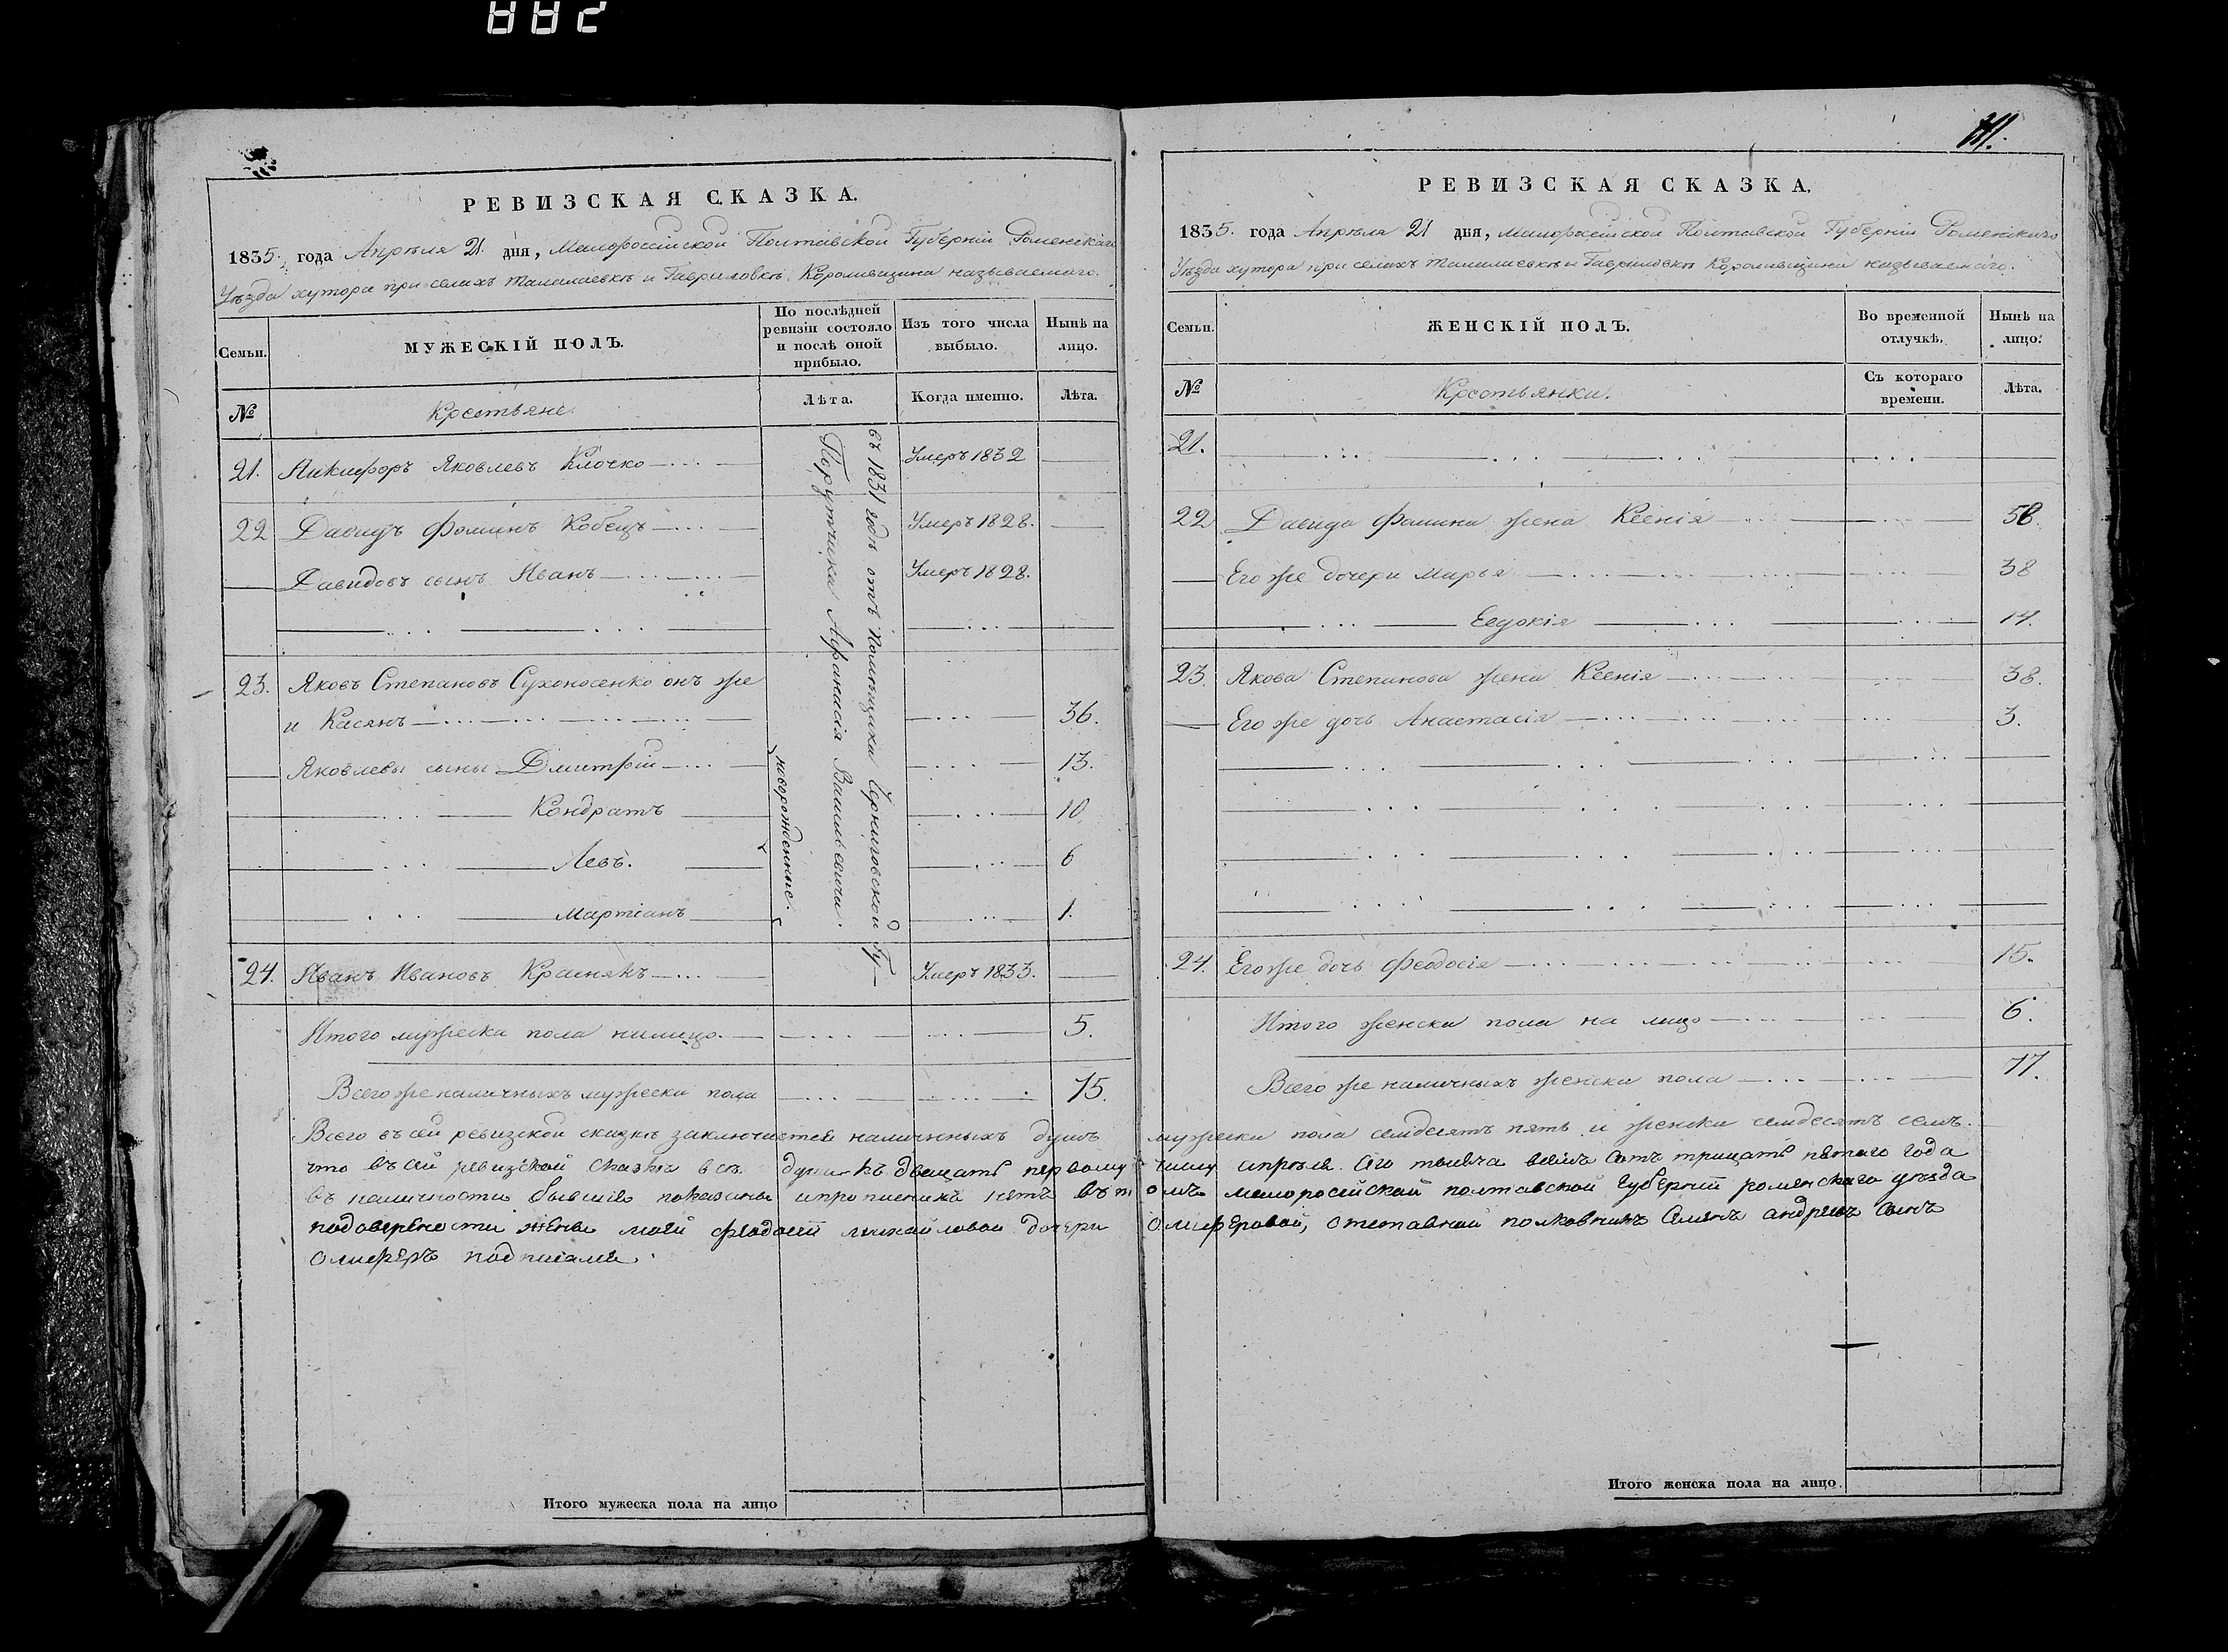 288
РЕВИЗСКАЯ СКАЗКА.
1835. года Апрѣля 21. дня, Малороссійской Полтавской Губерніи Роменскаго
Уѣзда хутора при селахъ Талалаевкѣ и Гавриловкѣ Коровищина называемаго.
Семьи.
МУЖЕСКІЙ ПОЛЪ.
По послѣдней ревизіи состояло и послѣ оной прибыло.
Изъ того числа выбыло.
Нынѣ на лицо.
№
Крестьяне.
Лѣта.
Когда именно.
Лѣта.
въ 1831 годѣ отъ Помѣщика Черниговской Гу-
Порутчика Афанасія Васильевича.
21. Никифоръ Яковлевъ Клочко Умеръ 1832
22 Давидъ Фоминъ Кобецъ Умеръ 1828.
Давидовъ сынъ Иванъ Умеръ 1828.
23. Яковъ Степановъ Сухоносенко онъ же
и Касянъ 36.
Яковлевы сыны Дмитрій 13.
Кондратъ 10
Левъ. 6
Мартіанъ 1.
новорожденные.
24. Иванъ Ивановъ Краснякъ Умеръ 1833.
Итого мужеска пола налицо. 5.
Всего же наличныхъ мужеска пола 75.
РЕВИЗСКАЯ СКАЗКА.
1835. года Апрѣля 21 дня, Малороссійской Полтавской Губерніи Роменскаго
Уѣзда хутора при селахъ Талалаевкѣ и Гавриловкѣ Коровищина называемаго.
Семьи.
ЖЕНСКІЙ ПОЛЪ.
Во временной отлучкѣ.
Нынѣ на лицо.
№
Крестьянки.
Съ котораго времени.
Лѣта.
21.
22 Давида Фомина жена Ксенія 58.
Его же дочери Марья 38
Евдокія 14.
23. Якова Степанова жена Ксенія 38.
Его же дочь Анастасія 3.
24. Его же дочь Феодосія 15.
Итого женска пола на лицо 6.
Всего же наличныхъ женска пола 77.
Всего въ сей ревизской сказкѣ заключается наличныхъ душъ мужеска пола семдесятъ пять и женска семдесятъ семь.
что въ сей ревизской сказке всѣ души къ двацать первому числу апреля сего тысеча восемь сотъ трицать пятаго года
въ наличности бывшие показаны и прописныхъ нетъ въ томъ малоросейской полтавской губерний роменскаго уезда
подоверености жены моей феодосий михайловой дочери Олиферовой, отставной полковникъ Семенъ андреевъ сынъ
Олиферъ подписалса.
Итого мужеска пола на лицо
Итого женска пола на лицо.